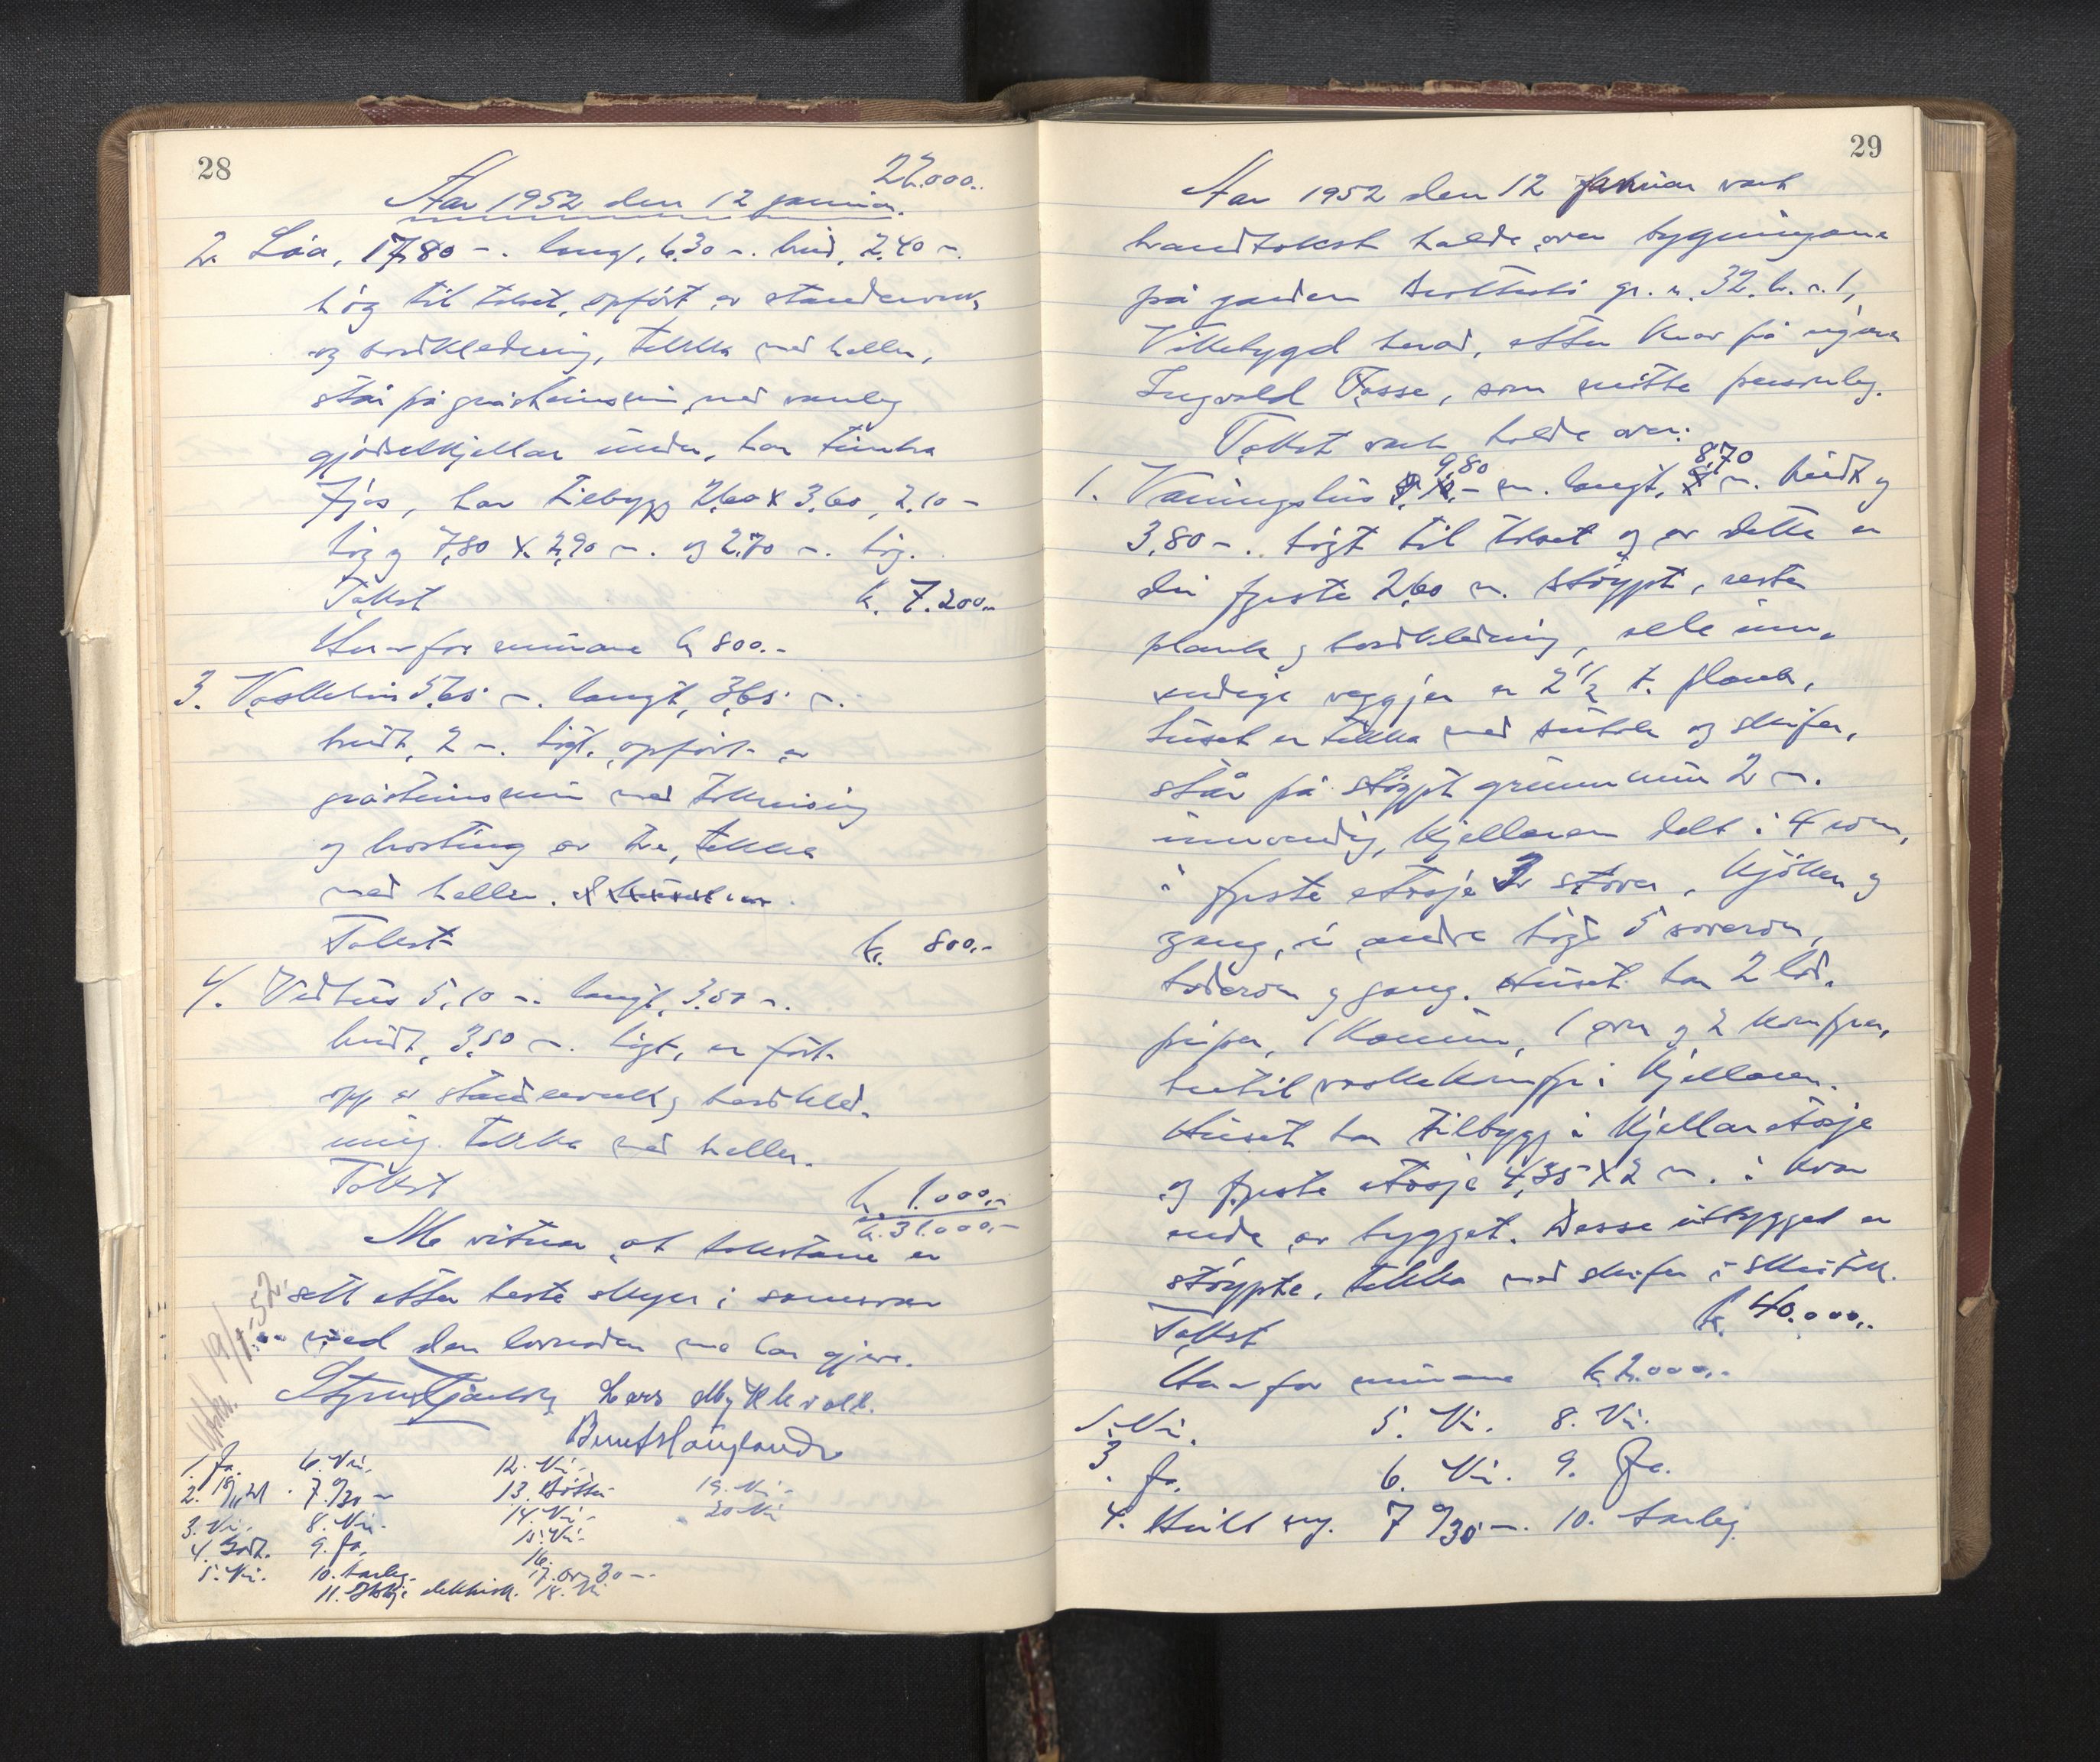 28
22.000..
Aar 1952 den 12 januar.
2. Löa, 17,80 m. lang, 6,30 m. breid, 2,40 m.
hög til taket, opfört av standerverk
og bordkledning, tekka med heller,
står på gråsteinsmur med vanleg
gjödselkjellar under, har timbra
Fjös, har tilbygg 2,60 x 3,60, 2,10 m
hög og 7,80 x 2,90 m. og 2,70 m. hög.
Takst k. 7.200..
Herav for murane k 800.-
3. Vaskehus 5,65 m. langt, 3,65 m.
breidt, 2 m. högt, opfört av
gråsteinsmur med takreising
og brosting av tre, tekka
med heller.
Takst kr. 800.-
4. Vedhus 5,10 m. langt, 3,50 m.
breidt, 3,50 m. högt, er fört
opp av standerverk og bordkled-
ning. tekka med heller.
Takst k. 1.000.-
k. 31.000.-
Me vitnar at takstane er
sett etter beste skyn i samsvar
med den lovnaden me har gjeve.
Lars Mykkevoll.
Bernt Haugland
19/1-52.
1. Ja. 6. Nei. 12. Nei.
2. 7. 9/30 m 13. 19. Nei.
3. Nei. 8. Nei. 14. Nei. 20 Nei
4. Godt. 9. Ja. 15. Nei.
5. Nei. 10. Farleg. 16.
11. elektrisk. 17. 30 m. 18. Nei
29
Aar 1952 den 12 Januar vart
brandtakst halde over bygningane
på garden gr. n. 32. br. n. 1,
Vikebygd herad, etter krav på eigaren
Ingvald Fosse, som møtte personleg.
Takst vart halde over:
9,80 8,70
1. Vaningshus m. langt, m. breidt og
3,80 m. högt til taket og av dette er
dei fyrste 2,60 m. stöypt, resten
plank og bordkledning, alle inn-
vendige veggjer er 2 1/2 t. plank,
huset er tekka med sutak og skifer,
står på stöypt grunnmur 2 m.
innvendig, kjellaren delt i 4 rom,
i fyrste etasje 2 stover, kjöken og
gang, i andre högd 5 soverom,
baderom og gang. Huset har 2 löd.
piper, 1 kamin, 1 omn og 2 komfyrer,
hertil vaskekomfyr i kjellaren.
Huset har tilbygg i kjellaretasje
og fyrste etasje 4,35 x 2 m. i kvar
ende av bygget. Desse utbygget er
stöypte, tekka med skifer i
Takst k. 40.000..
Herav for murane k 2.000..
1. Nei. 5. Nei. 8. Nei.
3. Ja. 6. Nei. 9. Ja.
4. Heilt ny. 7 9/30 m. 10. Farleg.